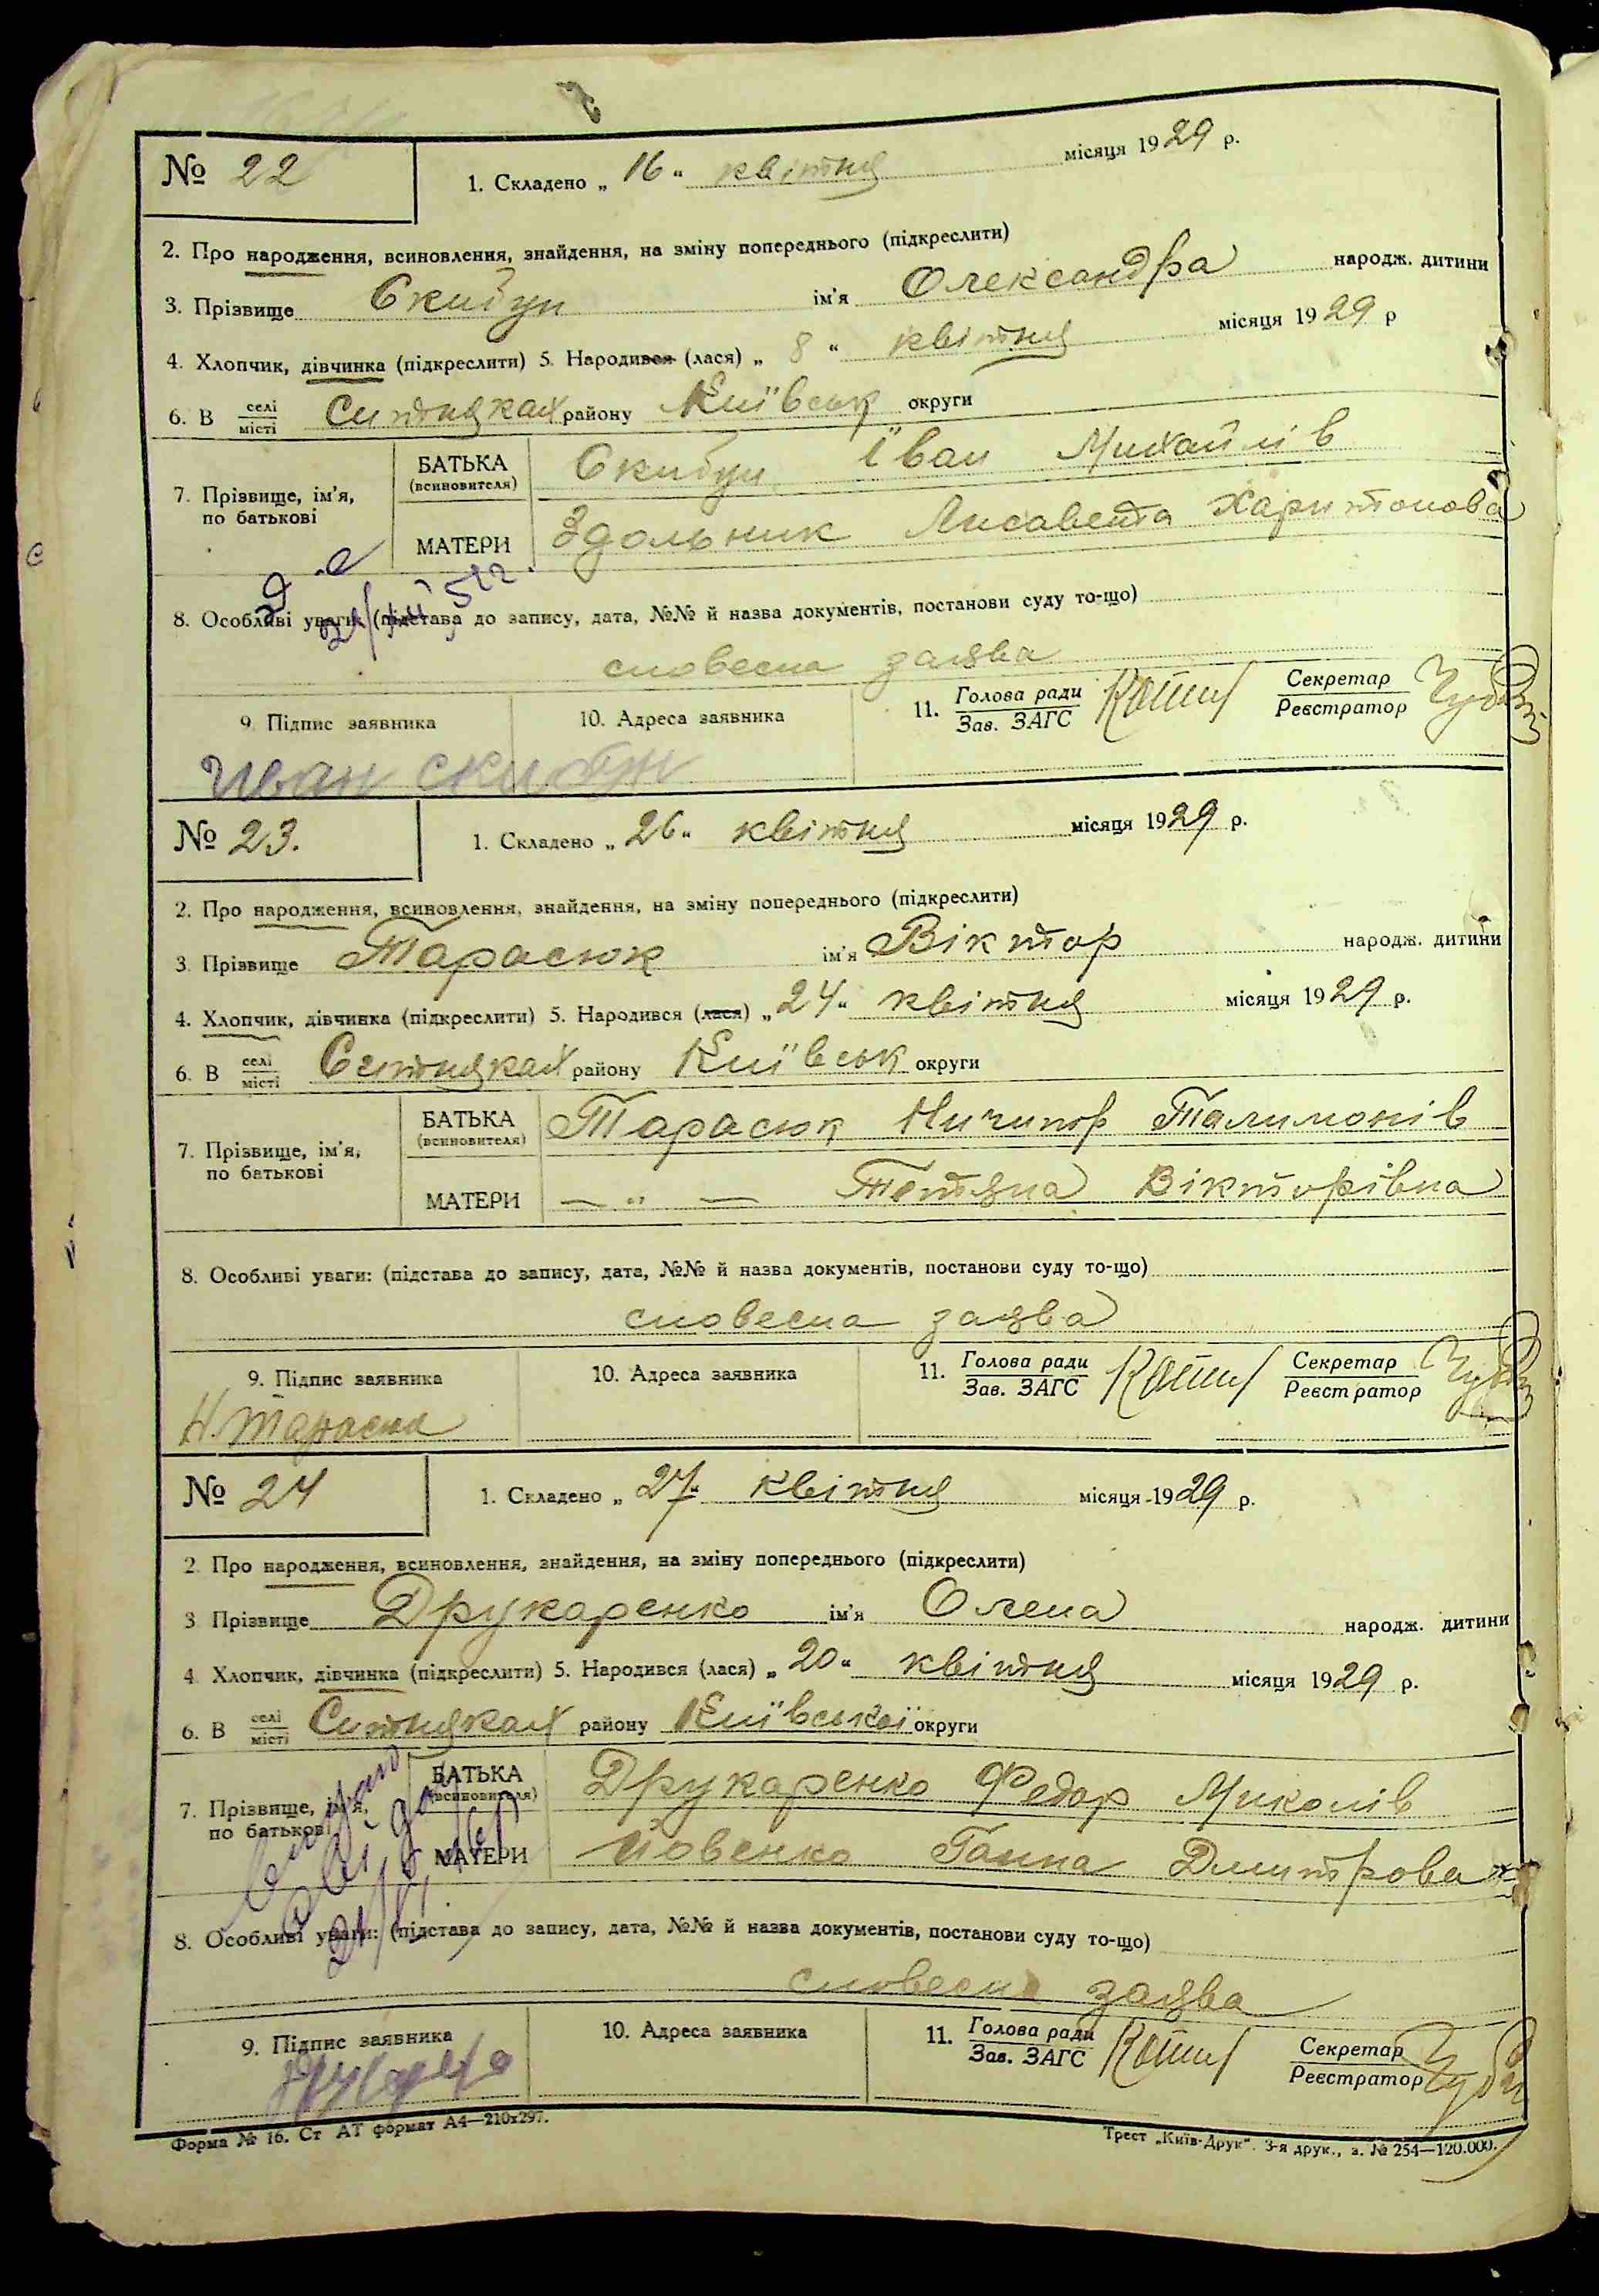 № 22
1. Складено „ 16 “ квітня місяця 1929 р.
2. Про народження, всиновлення, знайдення, на зміну попереднього (підкреслити)
3. Прізвище Скибун ім'я Олександра народж. дитини
4. Хлопчик, дівчинка (підкреслити) 5. Народився (лася) „ 8 “ квітня місяця 1929 р
6. В селі місті Ситняках району Київськ округи
7. Прізвище, ім'я, по батькові
БАТЬКА (всиновителя) Скибун Іван Михайлів
МАТЕРИ Здольник Лисавета Харитонова
8. Особливі уваги: (підстава до запису, дата, №№ й назва документів, постанови суду то-що)
словесна заява
9. Підпис заявника 10. Адреса заявника 11. Голова ради Зав. ЗАГС Секретар Реєстратор
Иван скибун
№ 23.
1. Складено „ 26 “ квітня місяця 1929 р.
2. Про народження, всиновлення, знайдення, на зміну попереднього (підкреслити)
3. Прізвище Тарасюк ім'я Віктор народж. дитини
4. Хлопчик, дівчинка (підкреслити) 5. Народився (лася) „ 24 “ квітня місяця 1929 р.
6. В селі місті Ситняках району Київськ округи
7. Прізвище, ім'я, по батькові
БАТЬКА (всиновителя) Тарасюк Ничипор Талимонів
МАТЕРИ — „ — Тетяна Вікторівна
8. Особливі уваги: (підстава до запису, дата, №№ й назва документів, постанови суду то-що)
словесна заява
9. Підпис заявника 10. Адреса заявника 11. Голова ради Зав. ЗАГС Секретар Реєстратор
Н. Тарасюк
№ 24
1. Складено „ 27 “ квітня місяця 1929 р.
2. Про народження, всиновлення, знайдення, на зміну попереднього (підкреслити)
3. Прізвище Друкаренко ім'я Олена народж. дитини
4. Хлопчик, дівчинка (підкреслити) 5. Народився (лася) „ 20 “ квітня місяця 1929 р.
6. В селі місті Ситняках району Київської округи
7. Прізвище, ім'я, по батькові
БАТЬКА (всиновителя) Друкаренко Федор Миколів
МАТЕРИ Йовенко Ганна Дмитрова
8. Особливі уваги: (підстава до запису, дата, №№ й назва документів, постанови суду то-що)
словесна заява
9. Підпис заявника 10. Адреса заявника 11. Голова ради Зав. ЗАГС Секретар Реєстратор
Форма № 16. Ст АТ формат А4—210х297.
Трест „Київ-Друк“. 3-я друк., з. № 254—120.000.